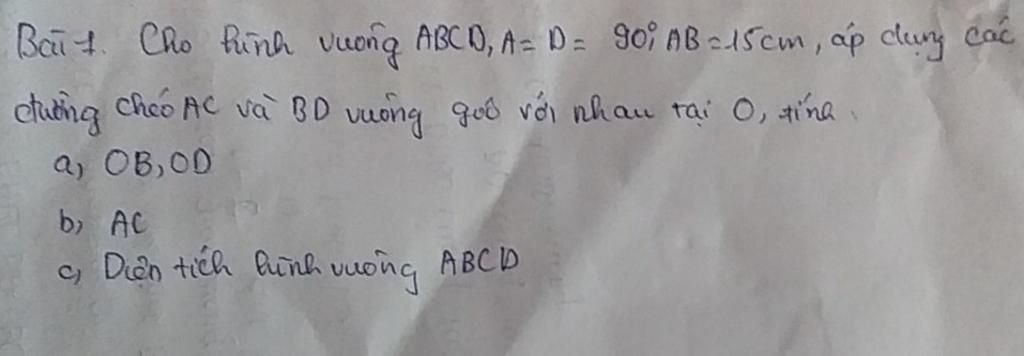 Bài 1. Cho hình vuông ABCD, A = D = 90°, AB = 15cm, áp dụng các
đường chéo AC và BD vuông góc với nhau tại O, tính.
a, OB, OD
b, AC
c, Diện tích hình vuông ABCD